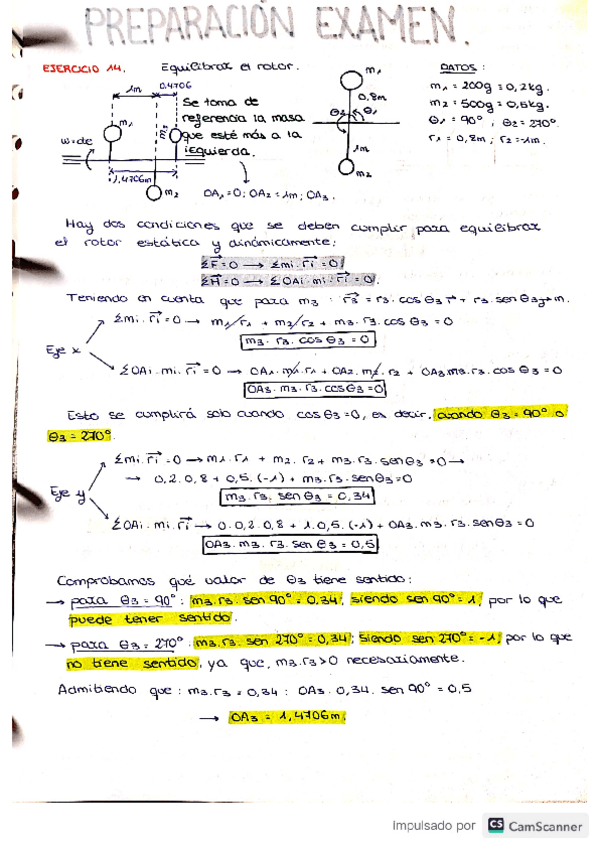 PREPARACIÓN EXAMEN.
EJERCICIO 14. Equilibrar el rotor.
DATOS:
m₁ = 200g = 0,2kg.
m₂ = 500g = 0,5kg.
θ₁ = 90° ; θ₂ = 270°.
r₁ = 0,8m ; r₂ = -1m.
1m 0.4706
m₁
m₃
w=cte
1,4706m
m₂
Se toma de
referencia la masa
que esté más a la
izquierda.
OA₁ = 0; OA₂ = 1m; OA₃.
m₁
0,8m
θ₂ θ₁
1m
m₂
Hay dos condiciones que se deben cumplir para equilibrar
el rotor estática y dinámicamente:
ΣF⃗ = 0 → Σmi. ri⃗ = 0
ΣM⃗ = 0 → ΣOAi. mi. ri⃗ = 0.
Teniendo en cuenta que para m₃ : r₃⃗ = r₃. cos θ₃ i⃗ + r₃. sen θ₃ j⃗ m.
Eje x
Σmi. ri⃗ = 0 → m₁ r₁ + m₂ r₂ + m₃. r₃. cos θ₃ = 0
m₃. r₃. cos θ₃ = 0
ΣOAi. mi. ri⃗ = 0 → OA₁. m₁. r₁ + OA₂. m₂. r₂ + OA₃ m₃. r₃. cos θ₃ = 0
OA₃. m₃. r₃. cos θ₃ = 0
Esto se cumplirá solo cuando cos θ₃ = 0, es decir, cuando θ₃ = 90° o
θ₃ = 270°.
Eje y
Σmi. ri⃗ = 0 → m₁. r₁ + m₂. r₂ + m₃. r₃. sen θ₃ = 0 →
→ 0,2. 0,8 + 0,5. (-1) + m₃. r₃. sen θ₃ = 0
m₃. r₃. sen θ₃ = 0,34
ΣOAi. mi. ri⃗ → 0. 0,2. 0,8 + 1. 0,5. (-1) + OA₃. m₃. r₃. sen θ₃ = 0
OA₃. m₃. r₃. sen θ₃ = 0,5
Comprobamos qué valor de θ₃ tiene sentido:
→ para θ₃ = 90° : m₃. r₃. sen 90° = 0,34, siendo sen 90° = 1, por lo que
puede tener sentido.
→ para θ₃ = 270° : m₃. r₃. sen 270° = 0,34, siendo sen 270° = -1, por lo que
no tiene sentido, ya que, m₃. r₃ > 0 necesariamente.
Admitiendo que : m₃. r₃ = 0,34 : OA₃. 0,34. sen 90° = 0,5
→ OA₃ = 1,4706m.
Impulsado por CS CamScanner